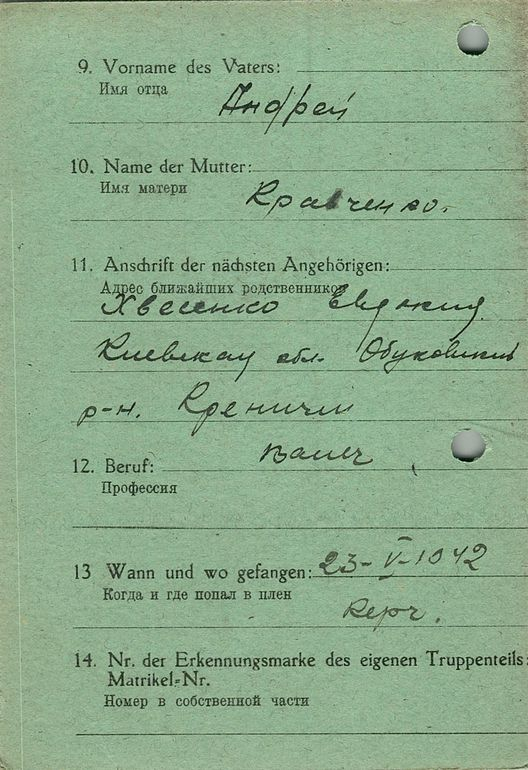 9. Vorname des Vaters:
Имя отца
Андрей
10. Name der Mutter:
Имя матери
Кравченко.
11. Anschrift der nächsten Angehörigen:
Адрес ближайших родственников
Хвесенко Евдокия
Киевская обл. Обуховский
р-н. Креничи
12. Beruf:
Профессия
13 Wann und wo gefangen: 23-V-1942
Когда и где попал в плен
Керч.
14. Nr. der Erkennungsmarke des eigenen Truppenteils:
Matrikel-Nr.
Номер в собственной части